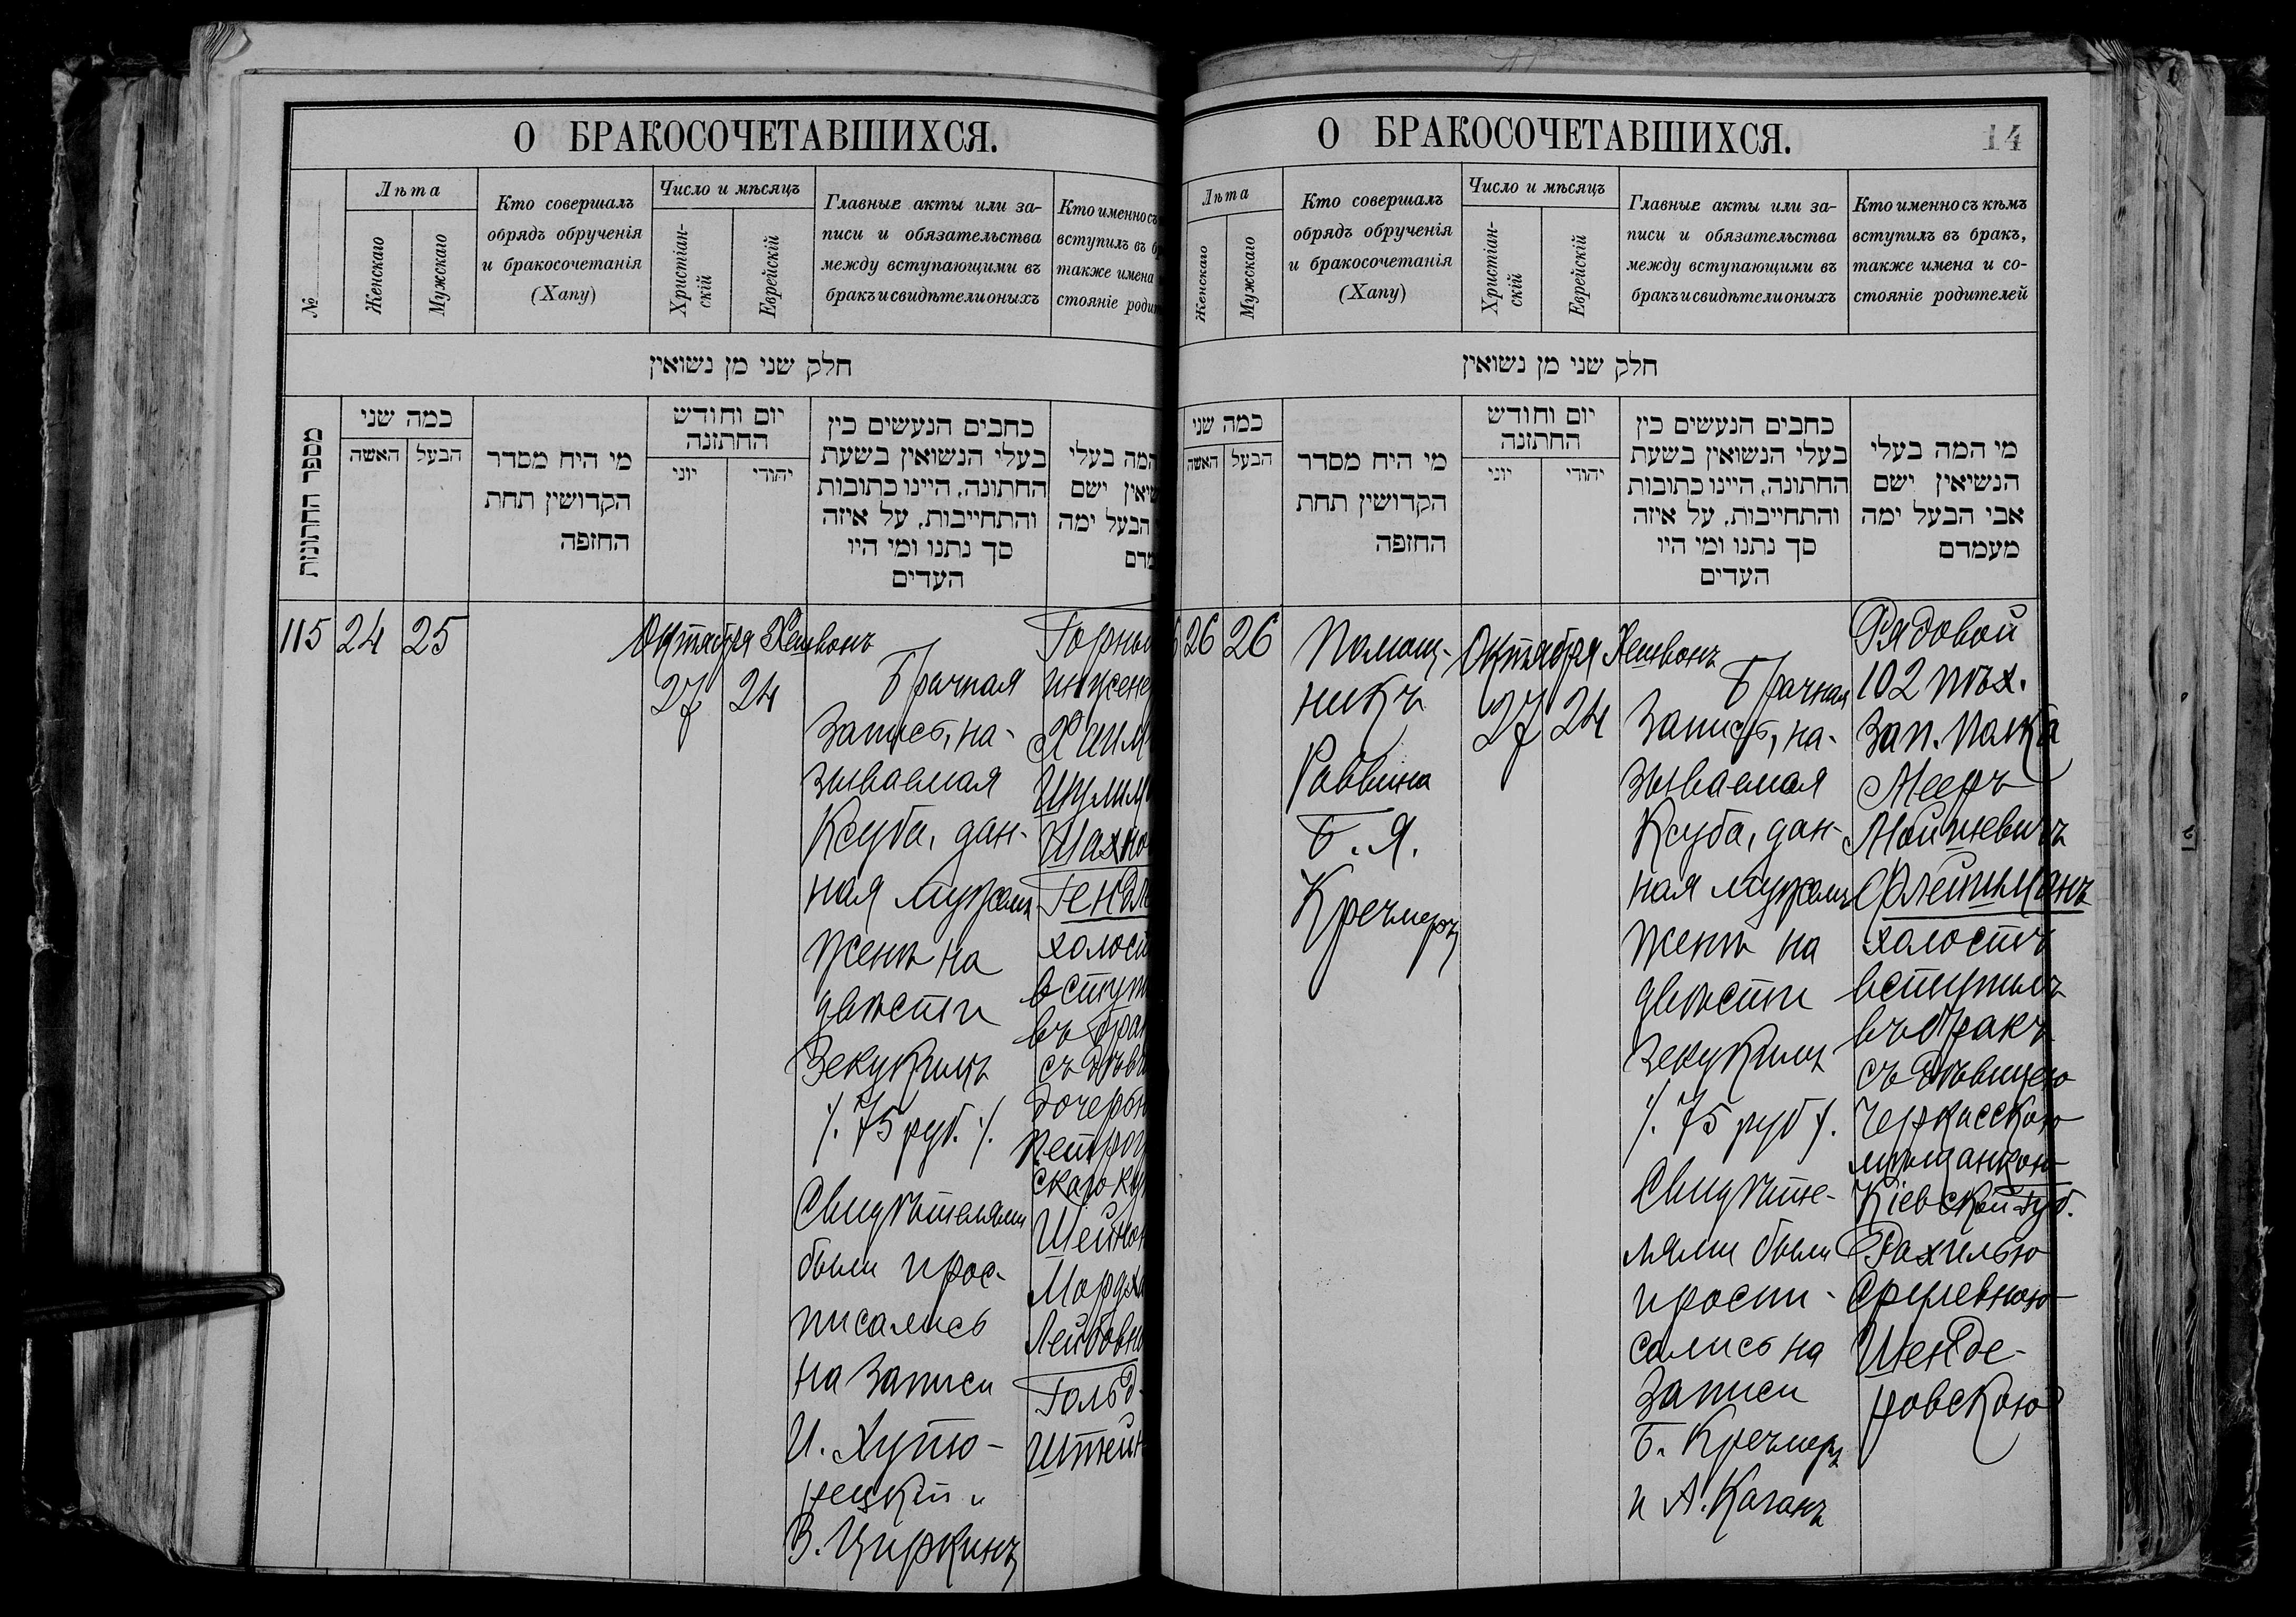 О БРАКОСОЧЕТАВШИХСЯ.
№
Лѣта
Женскаго
Мужскаго
Кто совершалъ
обрядъ обрученія
и бракосочетанія
(Хапу)
Число и мѣсяцъ
Христіан-
скій
Еврейскій
Главные акты или за-
писи и обязательства
между вступающими въ
бракъ и свидѣтели оныхъ
Кто именно съ
вступилъ въ б
также имена
стояніе роди
חלק שני מן נשואין
מספר החתונות
כמה שני
האשה
הבעל
מי היח מסדר
הקדושין תחת
החופה
יום וחודש
החתונה
יוני
יהודי
כחבים הנעשים בין
בעלי הנשואין בשעת
החתונה, היינו כתובות
והתחייבות, על איזה
סך נתנו ומי היו
העדים
המה בעלי
שיאין ישם
הבעל ימה
מדם
115
24
25
Октября
27
Хешвонъ
24
Брачная
запись, на-
зываемая
Ксуба, дан-
ная мужемъ
женѣ на
двѣсти
Зекукимъ
/. 75 руб. /.
Свидѣтелями
были и рос-
писались
на записи
И. Хутю-
рецкій и
В. Циркинъ
Горный
инжене
Хаим
Шулим
Шахно
Гендл
холост
вступ
въ бра
съ дѣви
дочерью
Петрог
скаго ку
Шейно
Мордхе
Лейбовно
Гольд-
штейн
О БРАКОСОЧЕТАВШИХСЯ.
14
Лѣта
Женскаго
Мужскаго
Кто совершалъ
обрядъ обрученія
и бракосочетанія
(Хапу)
Число и мѣсяцъ
Христіан-
скій
Еврейскій
Главные акты или за-
писи и обязательства
между вступающими въ
бракъ и свидѣтели оныхъ
Кто именно съ кѣмъ
вступилъ въ бракъ,
также имена и со-
стояніе родителей
חלק שני מן נשואין
כמה שני
האשה
הבעל
מי היח מסדר
הקדושין תחת
החופה
יום וחודש
החתונה
יוני
יהודי
כחבים הנעשים בין
בעלי הנשואין בשעת
החתונה, היינו כתובות
והתחייבות, על איזה
סך נתנו ומי היו
העדים
מי המה בעלי
הנשיאין ישם
אבי הבעל ימה
מעמדם
26
26
Помощ-
никъ
Раввина
Б. Я.
Кречмеръ
Октября
27
Хешвонъ
24
Брачная
запись, на-
зываемая
Ксуба, дан-
ная мужемъ
женѣ на
двѣсти
зекукимъ
/. 75 руб /.
Свидѣте-
лями были
и роспи-
сались на
записи
Б. Кречмеръ
и А. Каганъ
Рядовой
102 пѣх.
Зап. полка
Мееръ
Мойшевичъ
Флейшманъ
холостъ
вступилъ
въ бракъ
съ дѣвицею
Черкасскою
мѣщанкою
Кіевской губ.
Рахилью
Срулевною
Шенде-
ровскою